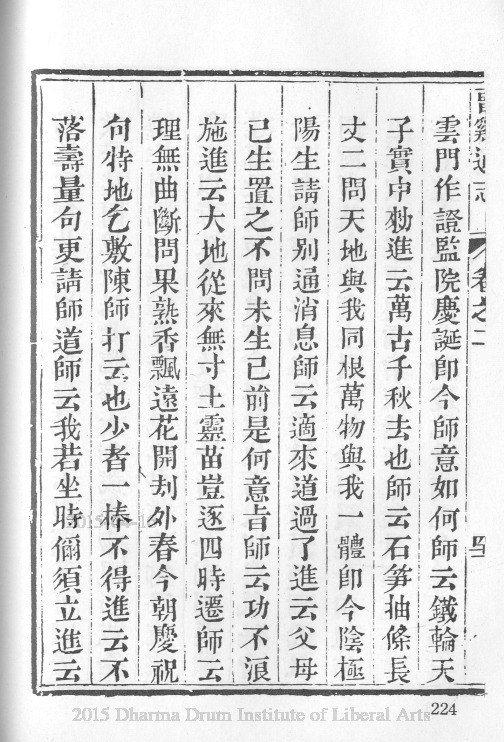 曹溪通志 卷之二 四
雲門作證監院慶誕卽今師意如何師云鐵輪天
子寰中勑進云萬古千秋去也師云石笋抽條長
丈二問天地與我同根萬物與我一體卽今陰極
陽生請師別通消息師云適來道過了進云父母
已生置之不問未生已前是何意旨師云功不浪
施進云大地從來無寸土靈苗豈逐四時遷師云
理無曲斷問果熟香飄遠花開刼外春今朝慶祝
句特地乞敷陳師打云也少者一棒不得進云不
落壽量句更請師道師云我若坐時儞須立進云
224
2015 Dharma Drum Institute of Liberal Arts